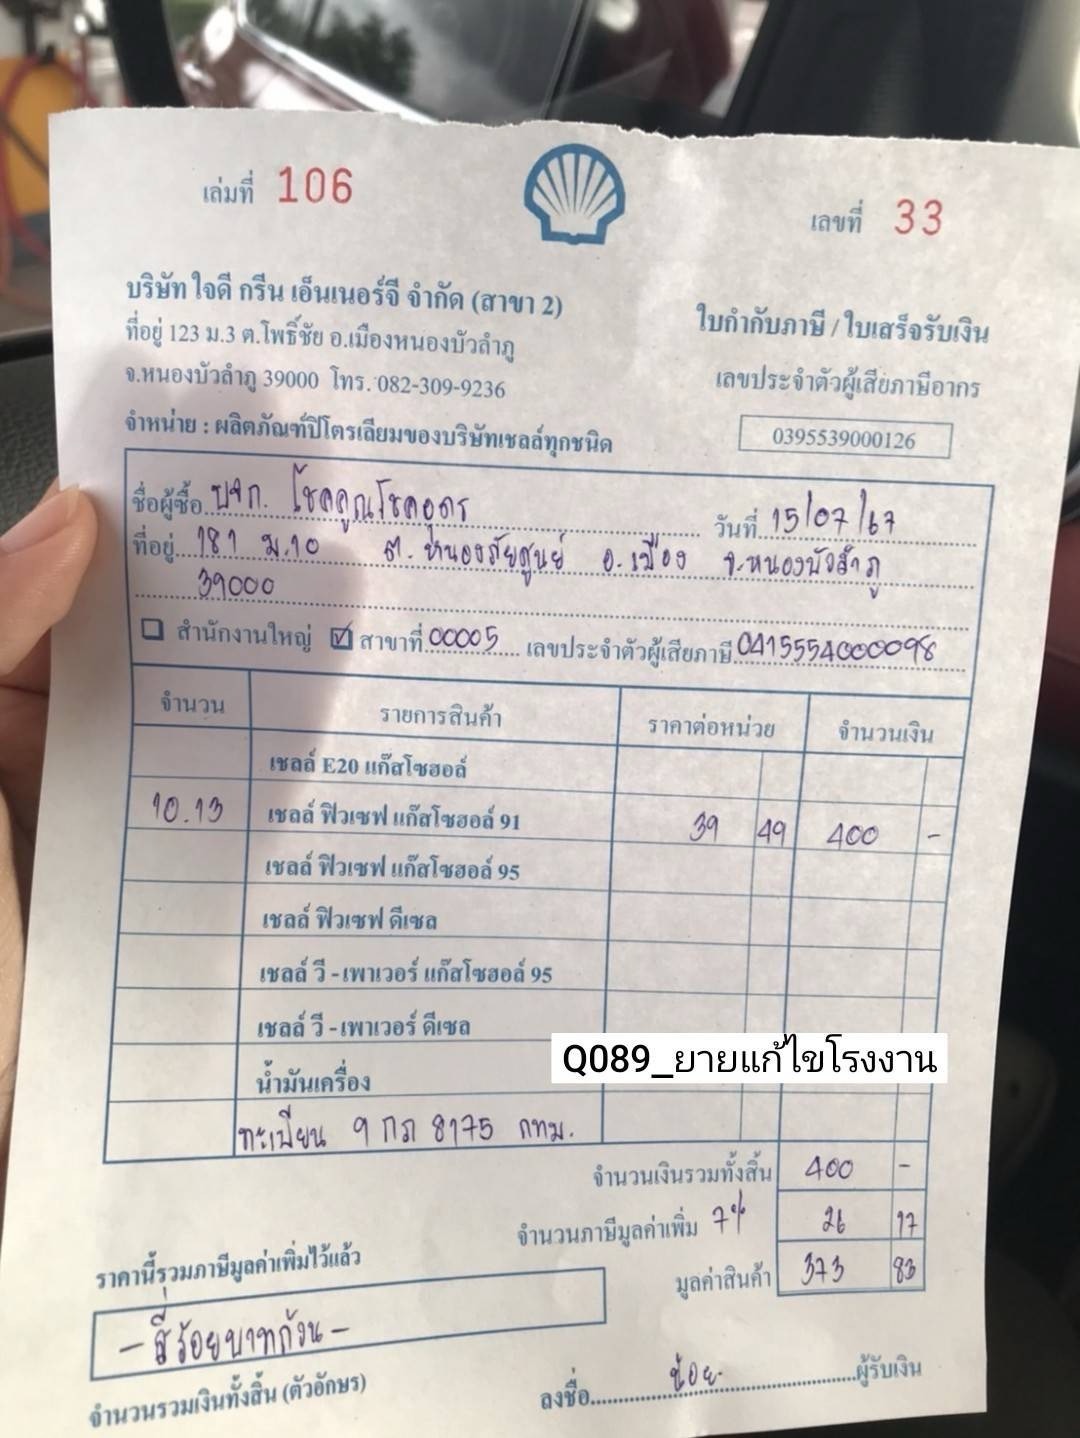 เล่มที่ 106
เลขที่ 33
บริษัท ใจดี กรีน เอ็นเนอร์จี จำกัด (สาขา 2)
ที่อยู่ 123 ม.3 ต.โพธิ์ชัย อ.เมืองหนองบัวลำภู
จ.หนองบัวลำภู 39000 โทร. 082-309-9236
จำหน่าย : ผลิตภัณฑ์ปิโตรเลียมของบริษัทเชลล์ทุกชนิด
ใบกำกับภาษี / ใบเสร็จรับเงิน
เลขประจำตัวผู้เสียภาษีอากร
0395539000126
ชื่อผู้ซื้อ บจก. โชคคูณโชคอุดร วันที่ 15/07/67
ที่อยู่ 181 ม.10 ต. อ.เมือง จ.หนองบัวลำภู
39000
สำนักงานใหญ่ ☑ สาขาที่ 00005 เลขประจำตัวผู้เสียภาษี 0415554000098
จำนวน รายการสินค้า ราคาต่อหน่วย จำนวนเงิน
เชลล์ E20 แก๊สโซฮอล์
10.13 เชลล์ ฟิวเซฟ แก๊สโซฮอล์ 91 39 49 400 -
เชลล์ ฟิวเซฟ แก๊สโซฮอล์ 95
เชลล์ ฟิวเซฟ ดีเซล
เชลล์ วี - เพาเวอร์ แก๊สโซฮอล์ 95
เชลล์ วี - เพาเวอร์ ดีเซล
น้ำมันเครื่อง
Q089_ยายแก้ไขโรงงาน
ทะเบียน 9 กภ 8175 กทม.
จำนวนเงินรวมทั้งสิ้น 400 -
จำนวนภาษีมูลค่าเพิ่ม 7% 26 17
มูลค่าสินค้า 373 83
ราคานี้รวมภาษีมูลค่าเพิ่มไว้แล้ว
- สี่ร้อยบาทถ้วน -
จำนวนรวมเงินทั้งสิ้น (ตัวอักษร)
ลงชื่อ ผู้รับเงิน